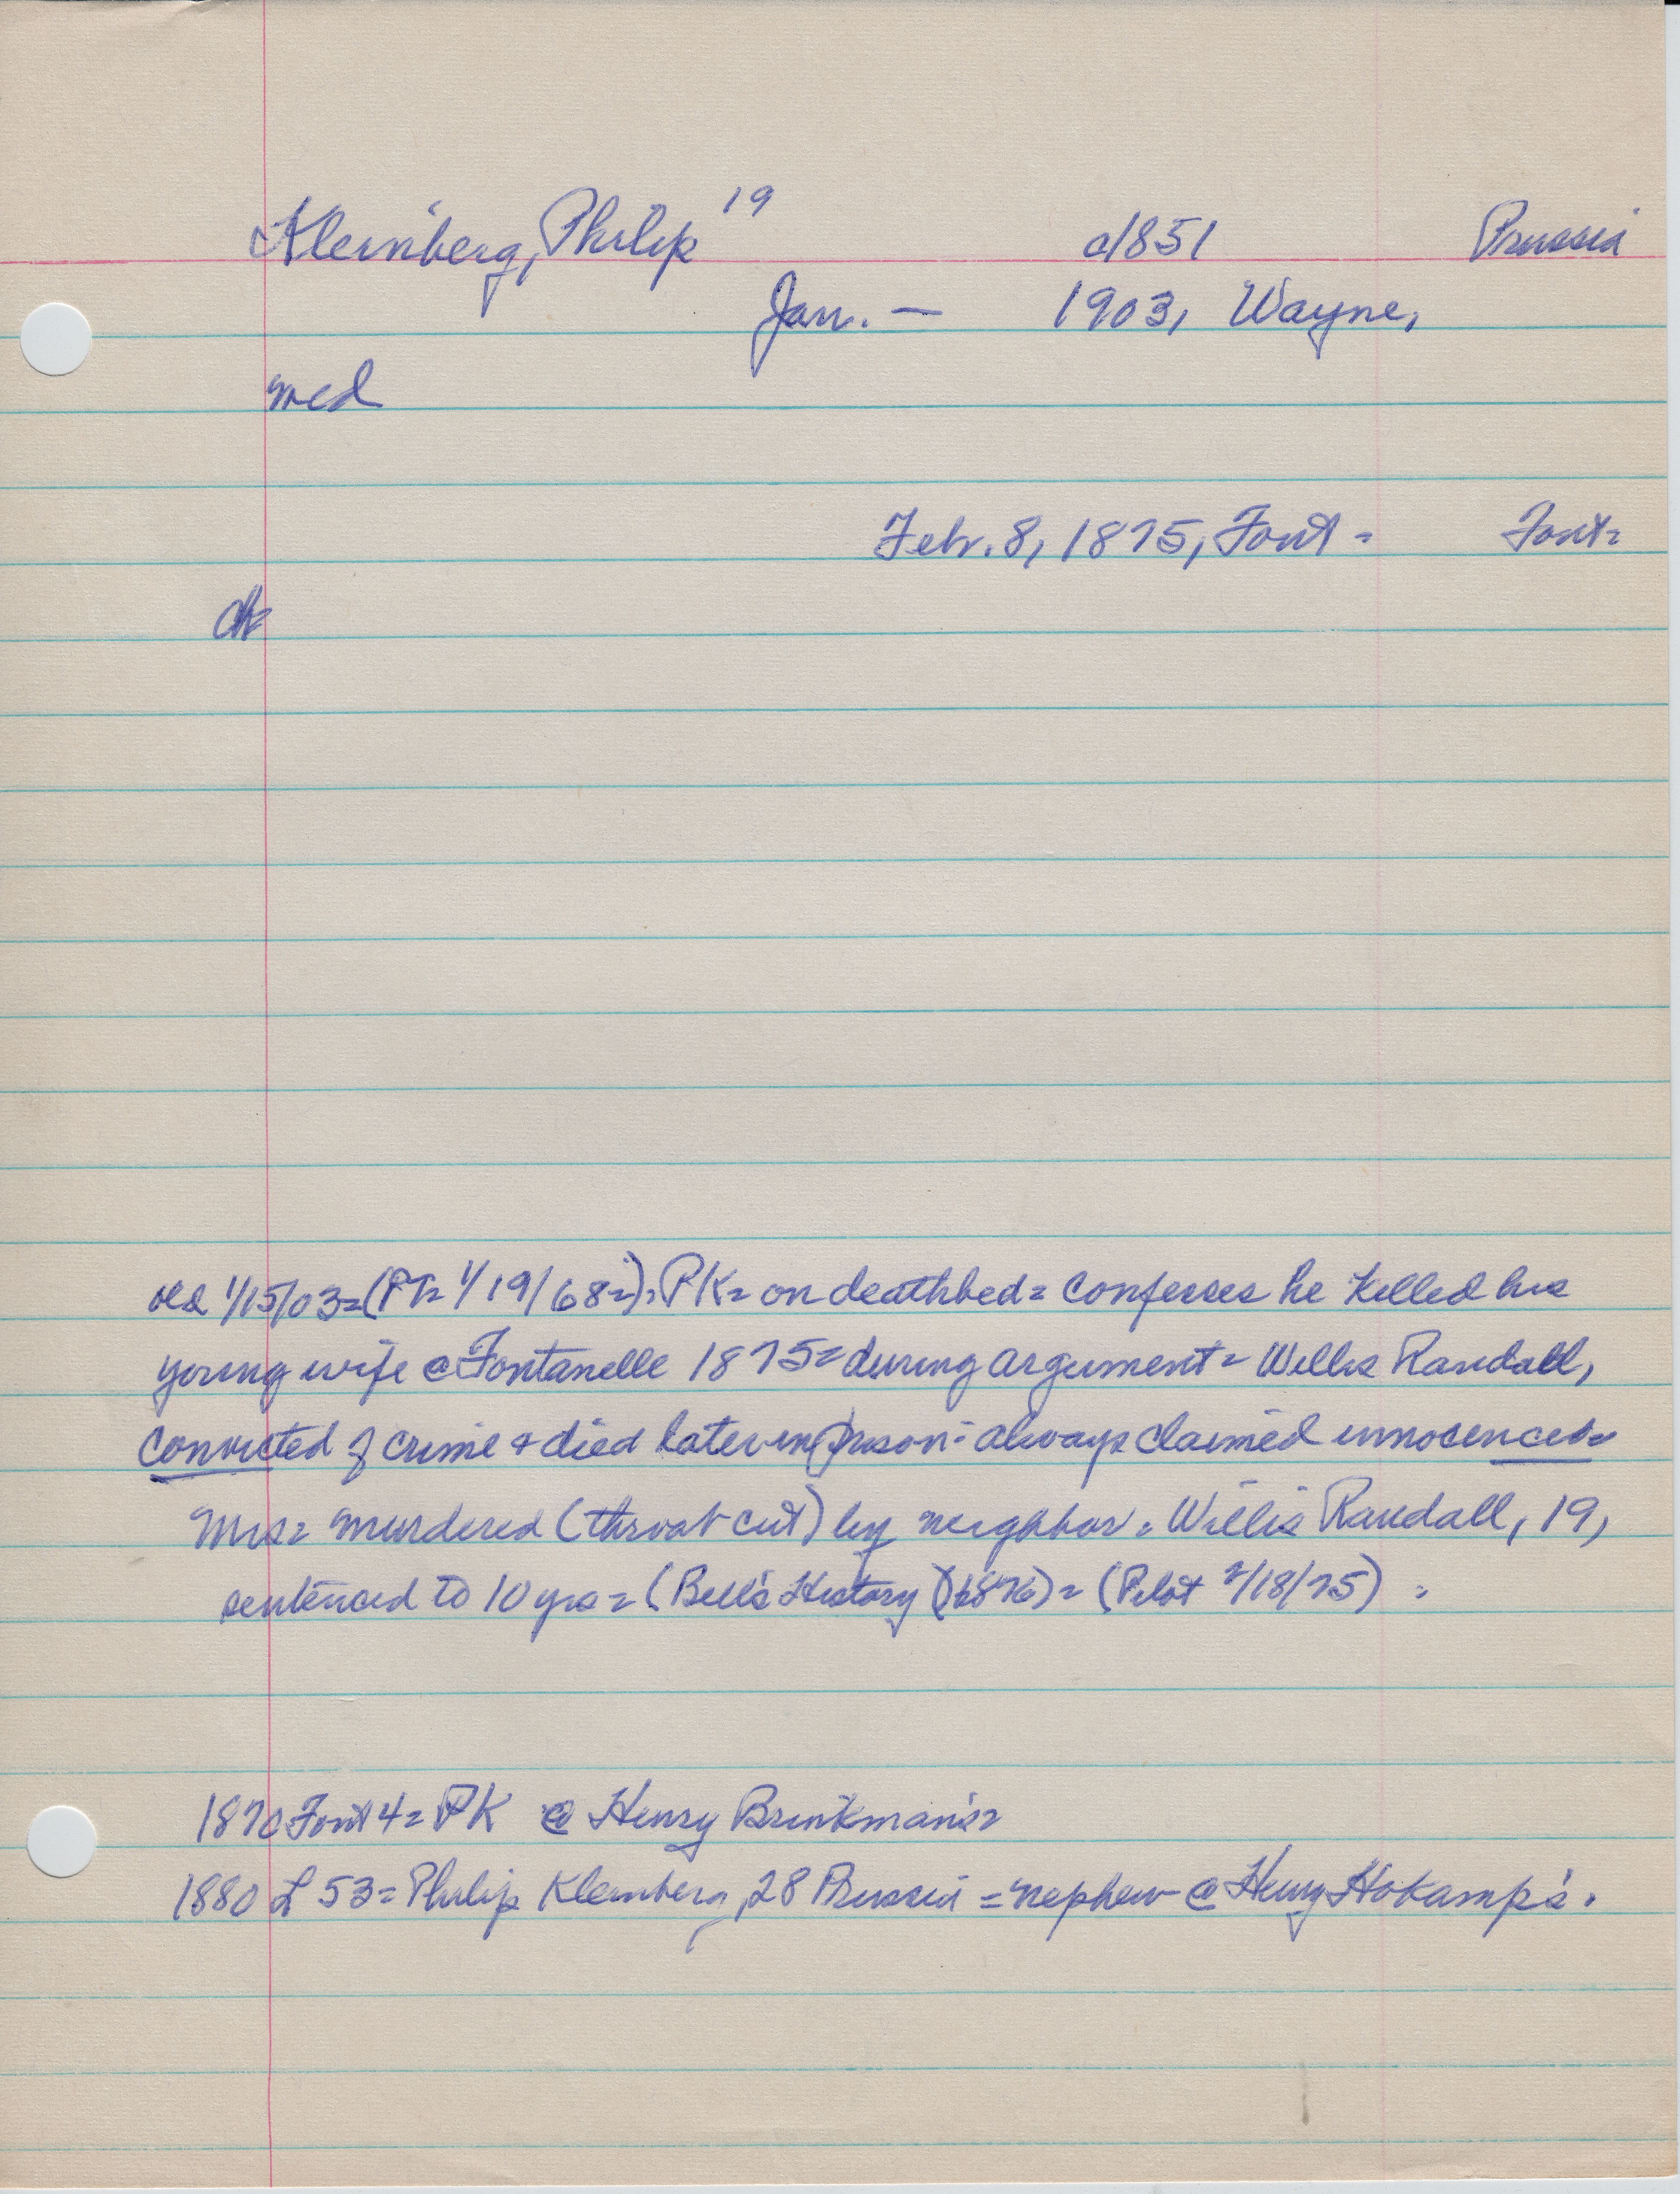 Kleinberg, Philip 19 c1851 Prussia
Jan. — 1903, Wayne,
med
Febr. 8, 1875, Font = Font=
ch
1/15/03=(PT= 1/19/68=)=PK= on deathbed= confesses he killed his
young wife @ Fontanelle 1875= during argument= Willis Randall,
convicted of crime & died later in prison- always claimed innocence=
Mrs= murdered (throat cut) by neighbor= Willis Randall, 19,
sentenced to 10 yrs= (Bell's History (1876)= (Pilot 2/18/75) =
1870 Font 4= PK @ Henry Brinkman's=
1880 L 53= Philip Kleinberg, 28 Prussia = nephew @ Henry Hokamp's.